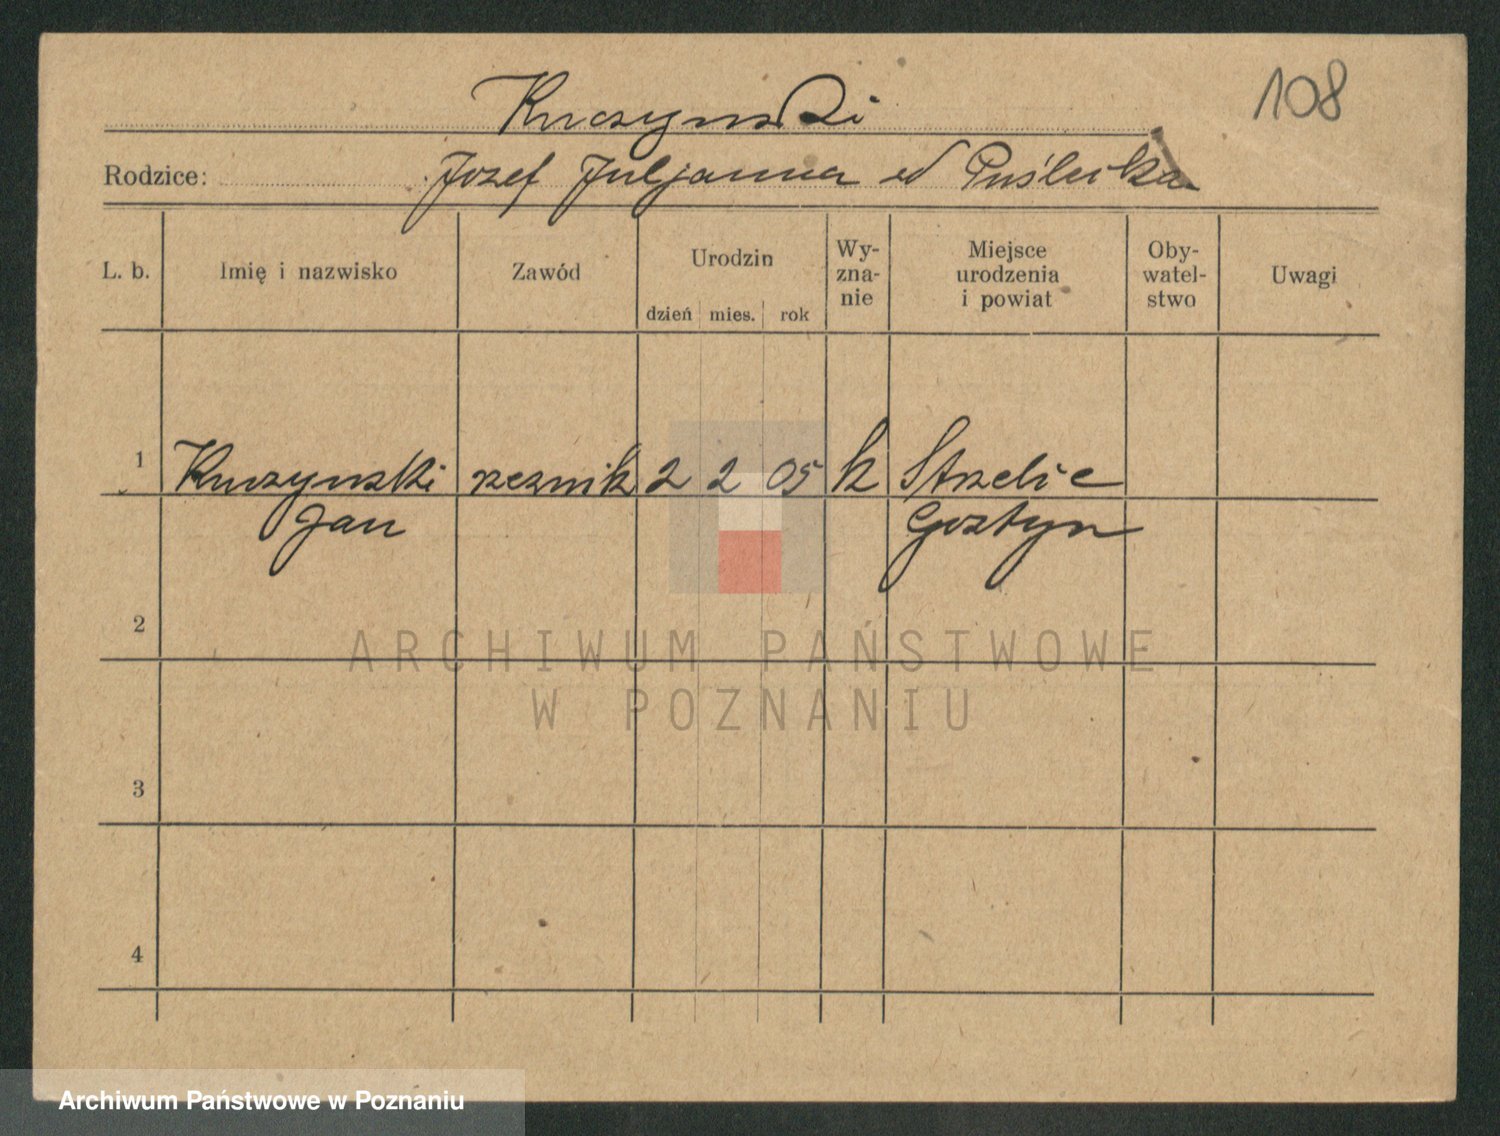 108
Kuczynski
Rodzice: Jozef Juljanna
L. b. Imię i nazwisko Zawód Urodzin dzień mies. rok Wy-zna-nie Miejsce urodzenia i powiat Oby-watel-stwo Uwagi
1 Kuczynski rzeznik 2 2 05 k Strzelce
Jan Gostyn
2
ARCHIWUM PAŃSTWOWE
W POZNANIU
3
4
Archiwum Państwowe w Poznaniu